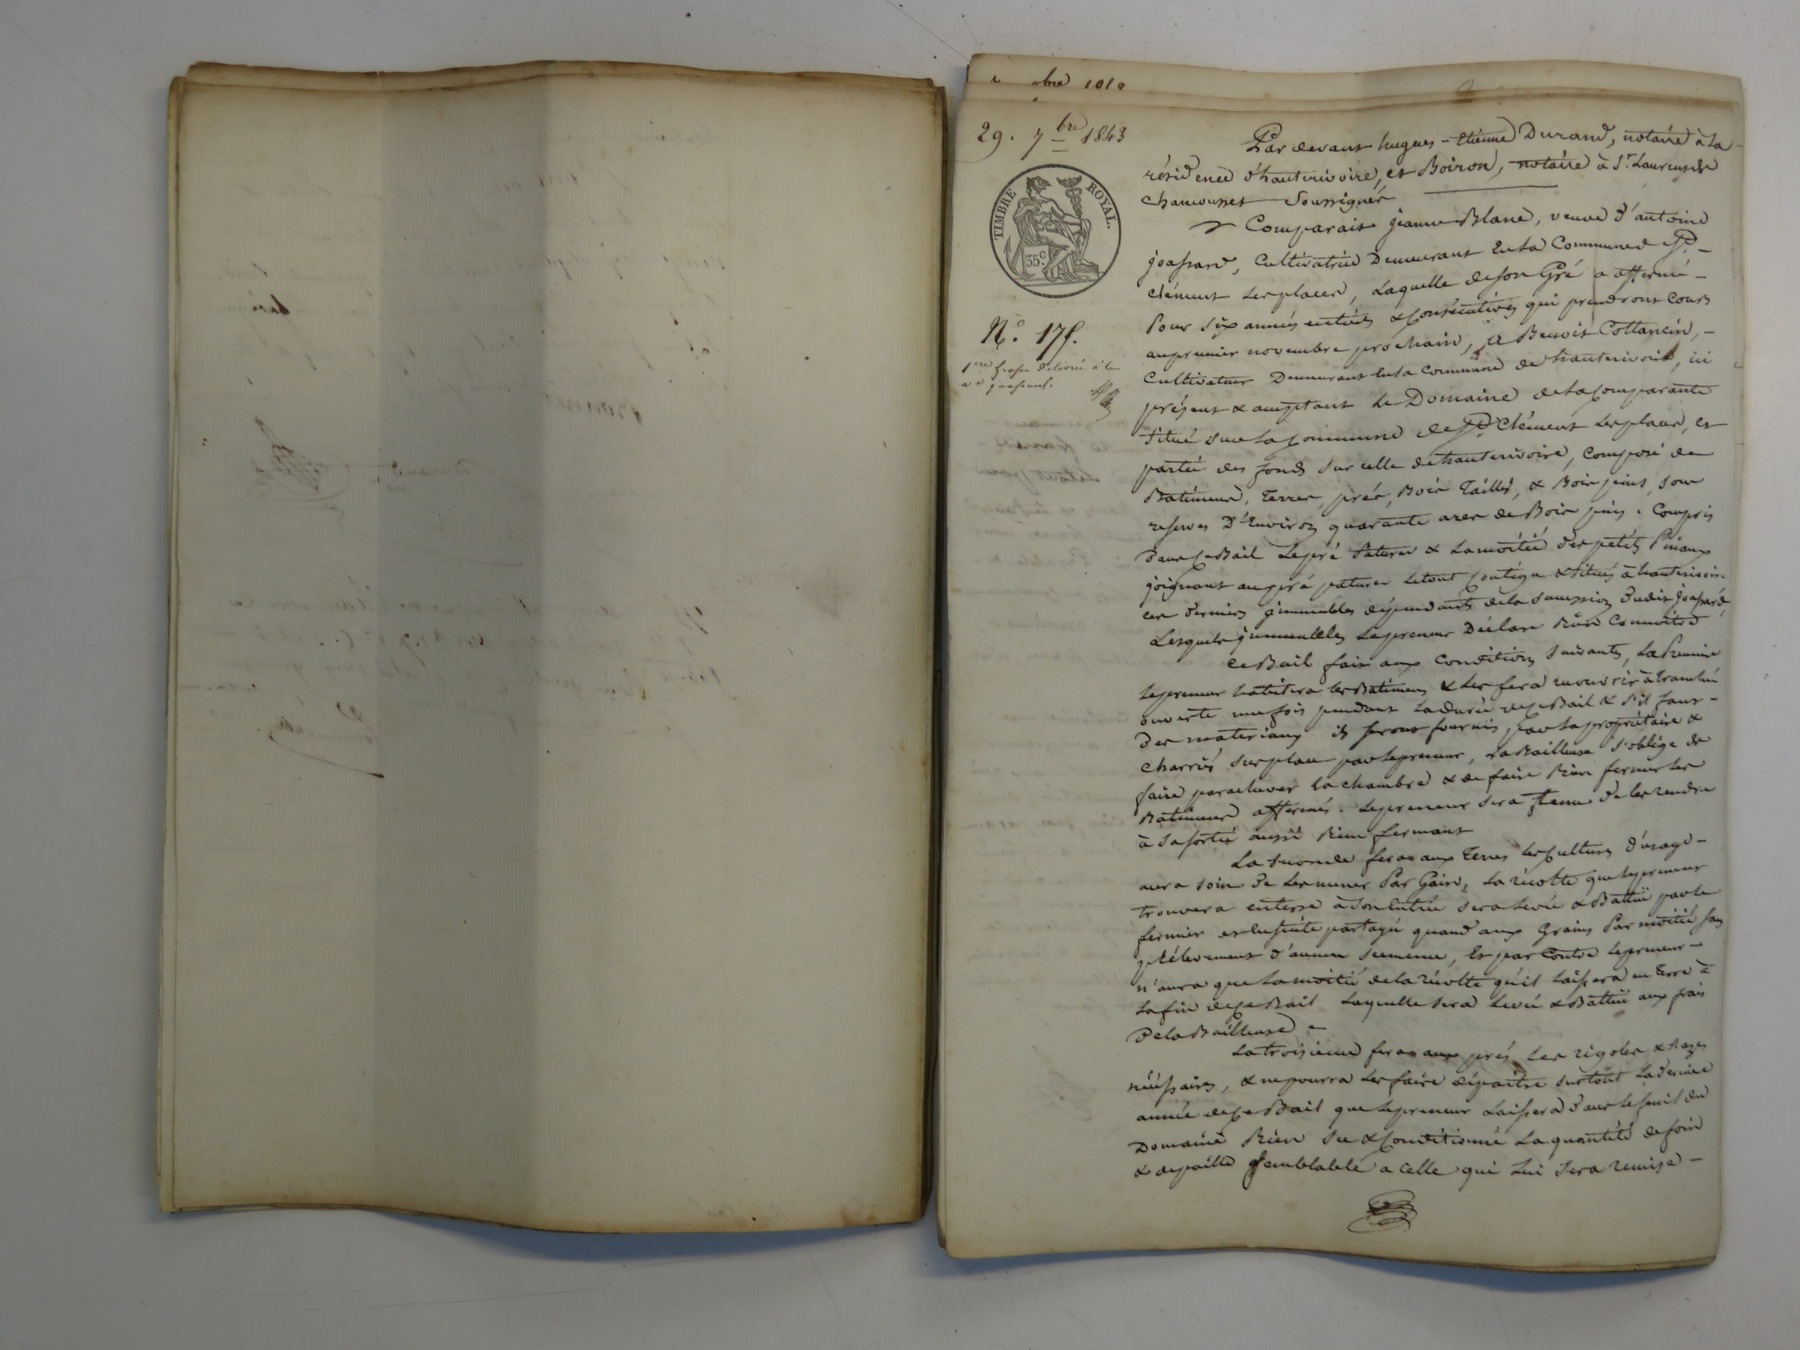 29. 7bre 1843
TIMBRE ROYAL
35c
No 175.
1ere grosse délivrée à la
ve joassard.
Par devant hugues-Etienne Durand, notaire à La
résidence d'hauterivoire, et Boiron, notaire à St. Laurent de
Chamousset Soussignés
Comparait jeanne Blanc, veuve d'antoine
joassard, Cultivatrice Demeurant En la Commune de St-
clément Les places, Laquelle de son Gré a affermé -
Pour six années entières & Consécutives qui prendront Cours
au premier novembre prochain, A Benoit Cottancin, -
Cultivateur Demeurant En la Commune de hauterivoire, ici
présent & acceptant Le Domaine de La Comparante
situé sur La Commune de St Clément Les places, et
partie des fonds sur celle de hauterivoire, Composé de
Batiments, Terres, prés, Bois Taillis, & Bois pins, sous
reserves D'Environ quarante ares de Bois pins. Compris
dans ce Bail Le pré Paturer & La moitié des petits Pinaux
joignant au pré paturer Le tout Contigu & situés à hauterivoire
ces derniers jmmeubles dépendants de la Succession dudit joassard
Lesquels jmmeubles Le preneur Déclare Bien Connoitre
Ce Bail fait aux Conditions suivants, La Premiere
Le preneur habitera les Batiments & Les fera recouvrir à tranchée
ouverte une fois pendant La durée de ce Bail & s'il faut -
des materiaux ils seront fournis par La propriétaire &
charriés sur place par Le preneur, La Bailleuse s'oblige de
faire parachever La chambre & de faire Bien fermer Les
Batiments affermés. Le preneur sera tenu de les rendre
à sa sortie aussi Bien fermant
La seconde fera aux Terres Les Cultures d'usage -
aura soin de Les mener Par Gain, La récolte que Le preneur
trouvera enterre à son Entrée sera Levée & Battue par Le
fermier et Ensuite partagée quand aux Grains Par moitié sans
prélèvement d'aucune semence, Et par Contre Le preneur -
n'aura que La moitié de La récolte qu'il Laissera en Terre à
La fin de ce Bail Laquelle sera Levée & Battue aux frais
de La Bailleuse
La troisieme fera aux prés Les rigoles & Rases
nécessaires, & ne pourra Les faire dépaitre surtout La derniere
année de ce Bail que Le preneur Laissera dans Le fenil du
Domaine Bien sec & Conditionné La quantité de foin
& de paille semblable à celle qui Lui sera remise -